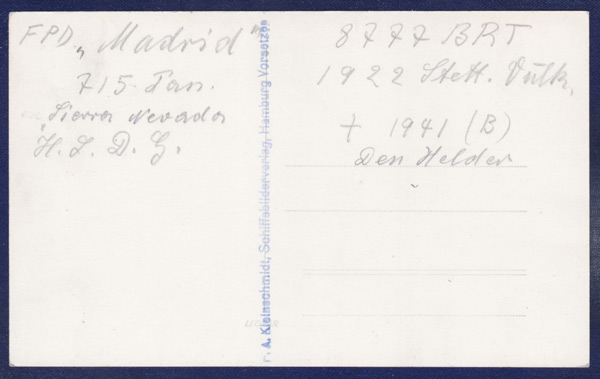 FPD „Madrid“
715 Pan.
„Sierra Nevada
H. S. D. G.
r. A. Kleinschmidt, Schiffsbilderverlag, Hamburg Vorsetzen
8777 BRT
1922 Stett. Vulk.
† 1941 (B)
Den Helder